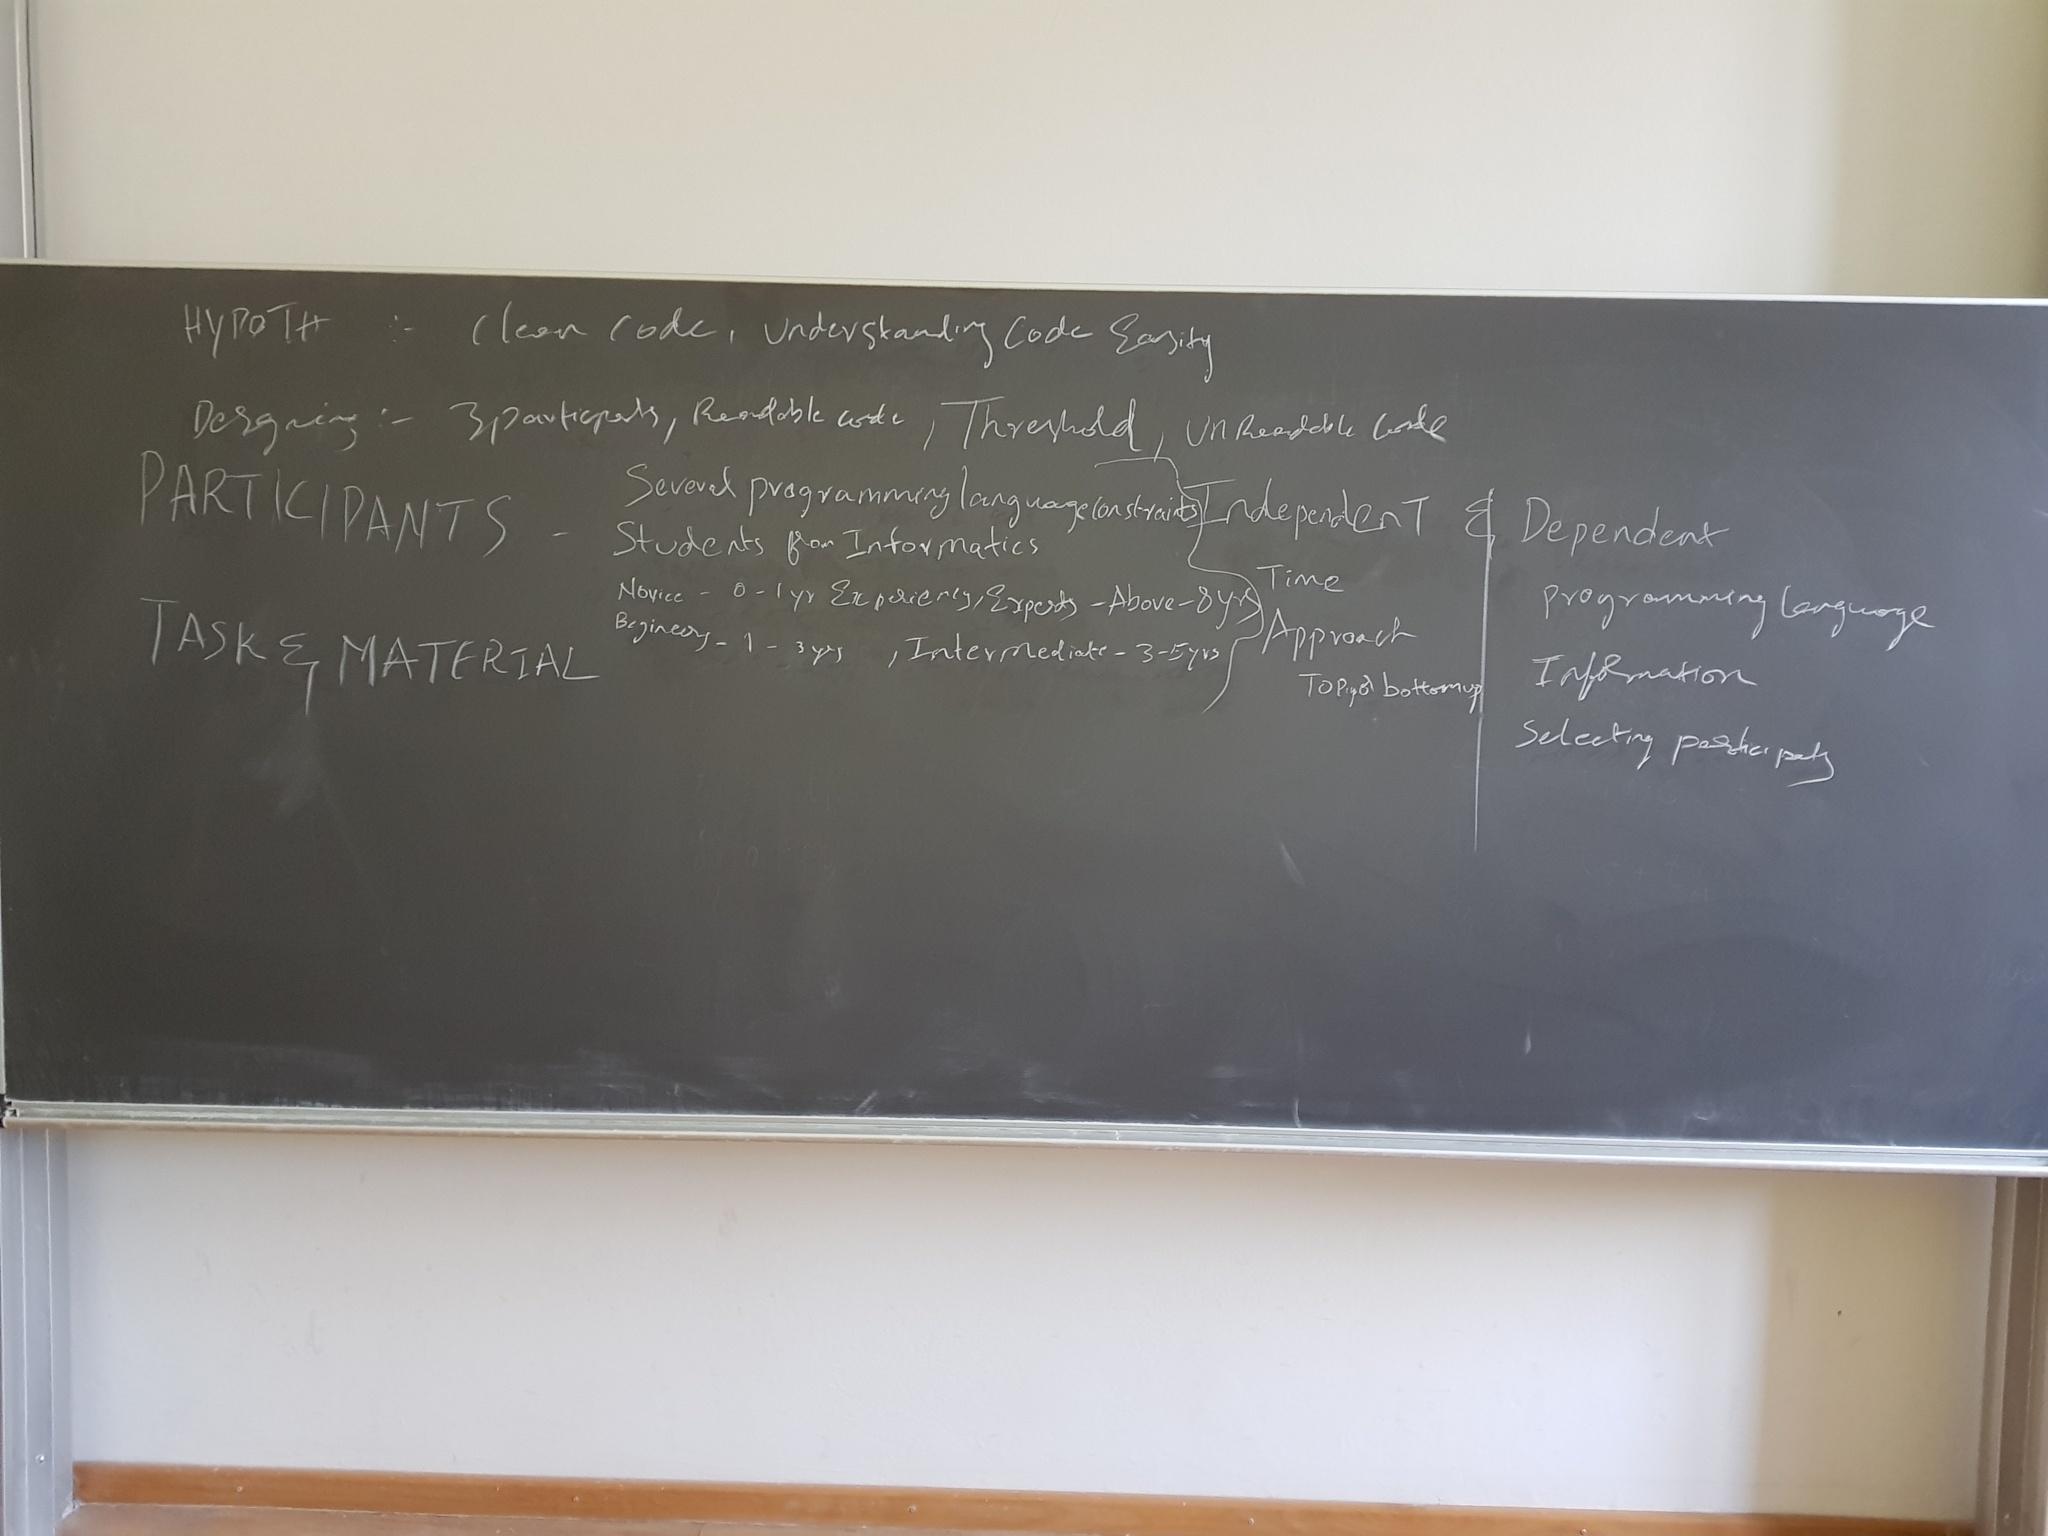 HYPOTH :- Clean Code, Understanding Code Easity
Designing :- 3 participats, Readable code, Threshold, UnReadable Code
PARTICIPANTS - Several programming language constraints
Students from Informatics
Novice - 0-1yr Experiency, Experts - Above - 8yrs
Begineers - 1 - 3yrs , Intermediate - 3-5yrs
TASK & MATERIAL
Independent & Dependent
Time
Approach
bottomup
programming language
Information
Selecting participats